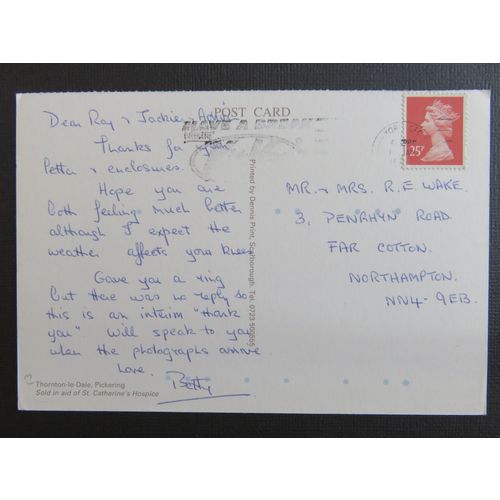 POST CARD
HAVE A BREAK
25P
Dear Ray & Jackie,
Thanks for your
letter & enclosures.
Hope you are
both feeling much better
although I expect the
weather affects your knees.
Gave you a ring
but there was no reply so
this is an interim "thank
you". Will speak to you
when the photographs arrive
Love. Betty
MR. & MRS. R. E. WAKE.
3, PENRHYN ROAD
FAR COTTON.
NORTHAMPTON.
NN4-9EB.
Printed by Dennis Print, Scarborough. Tel. 0723 500555
Thornton-le-Dale, Pickering
Sold in aid of St. Catherine's Hospice